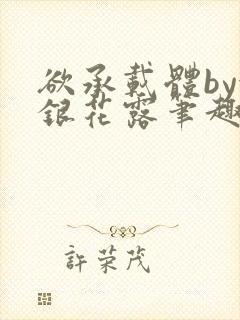 欲承載體by
銀花露筆趣
許荣茂